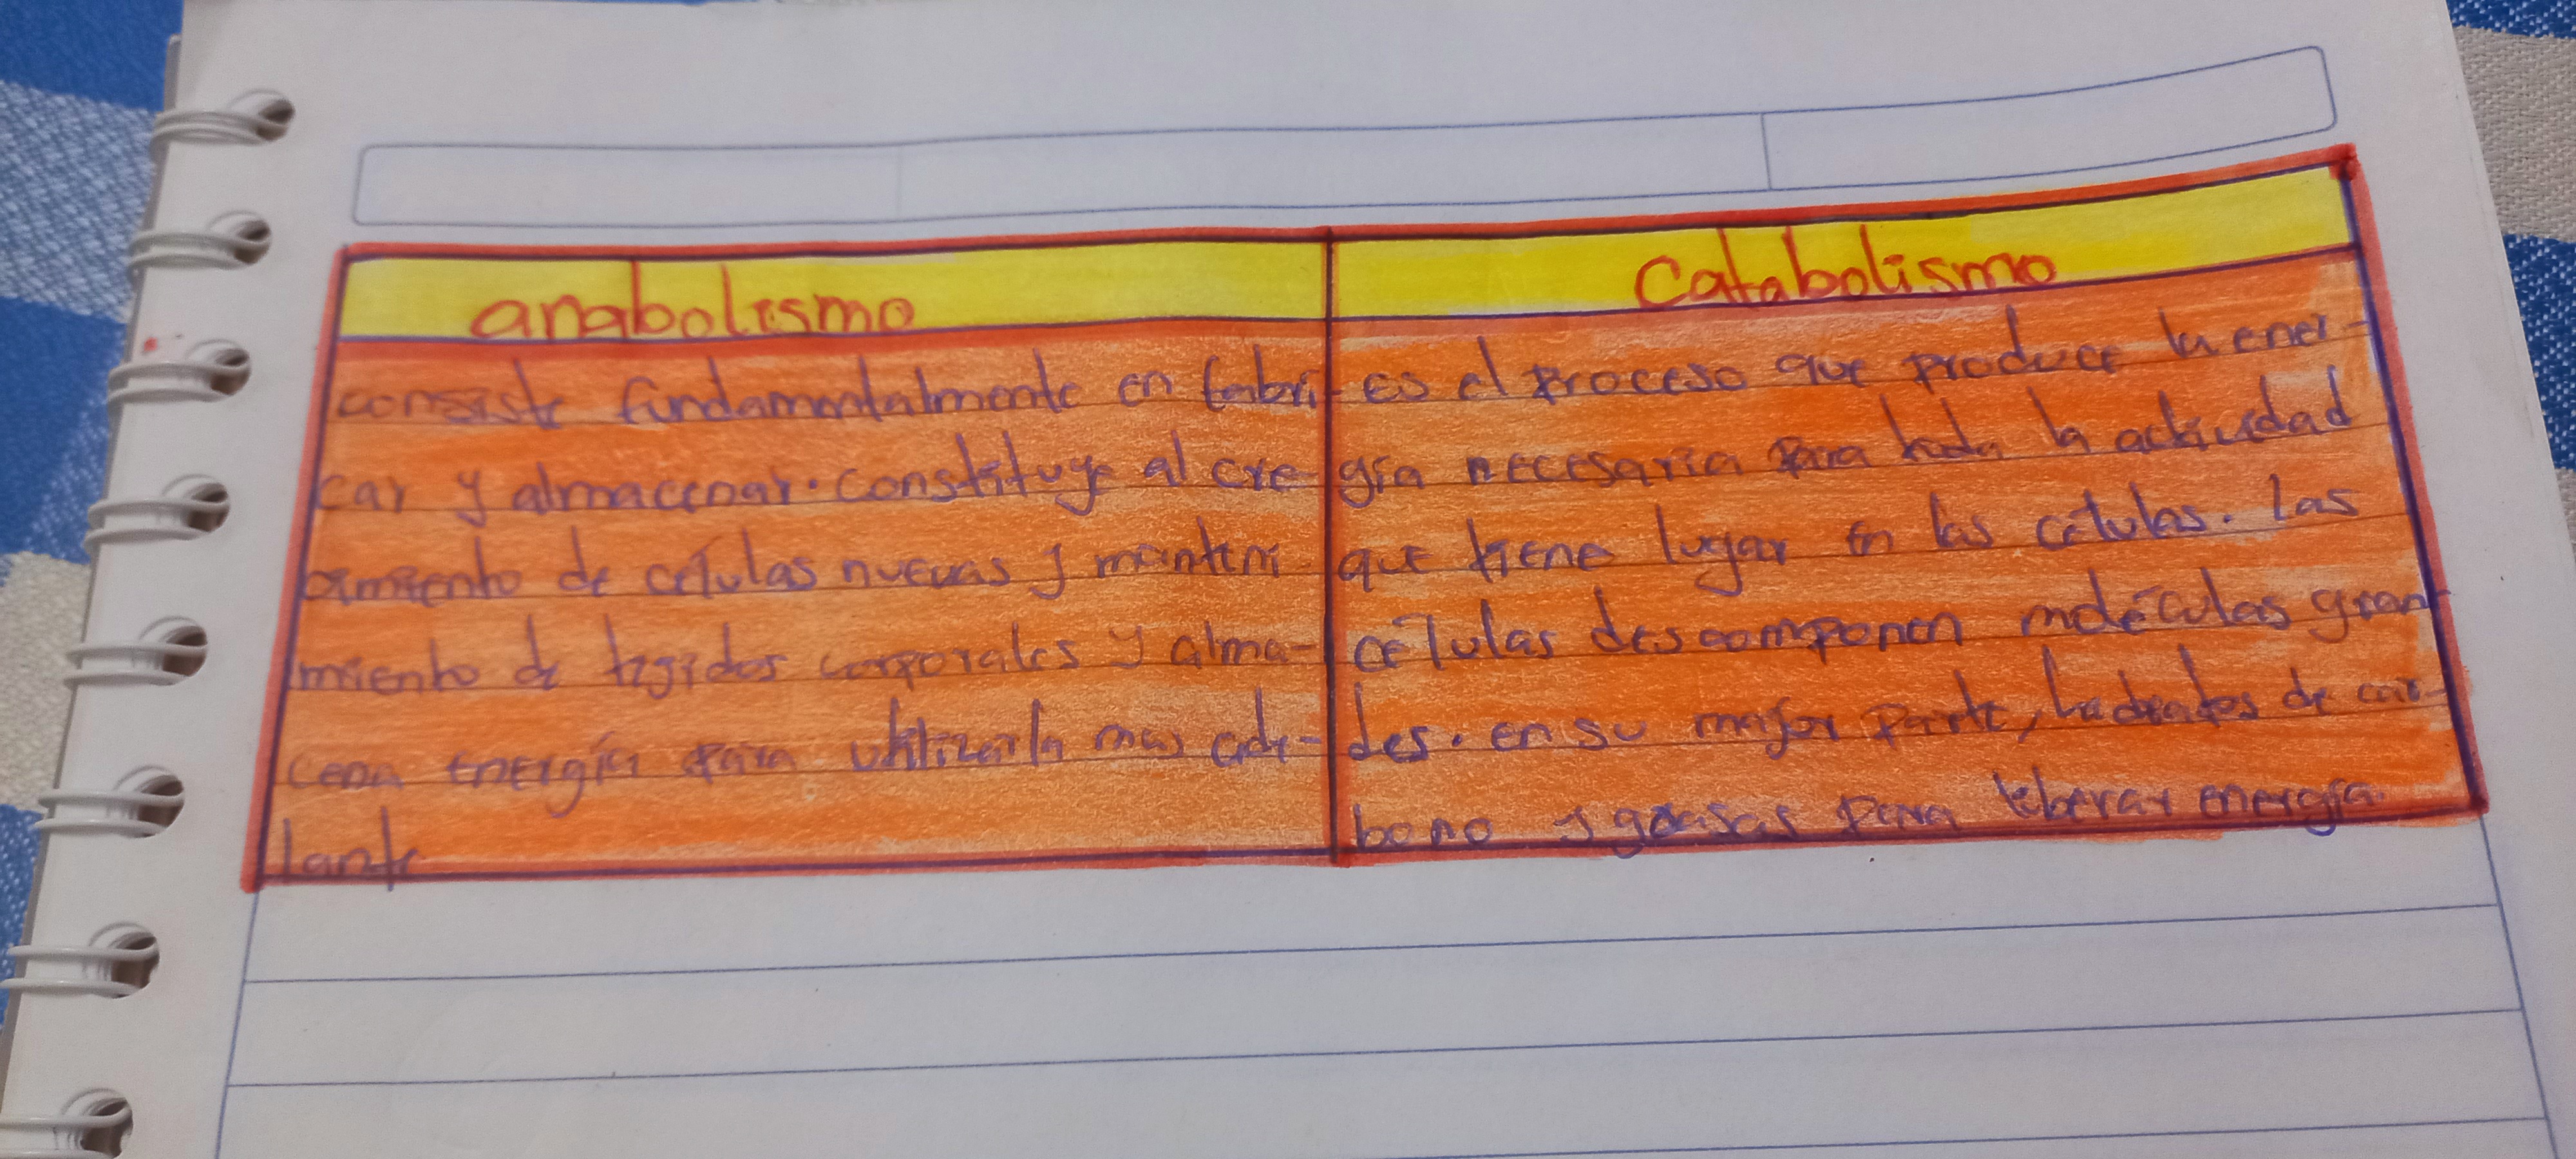 anabolismo
consiste fundamentalmente en fabri-
car y almacenar. constituye al cre-
cimiento de células nuevas y manteni-
miento de tegidos corporales y alma-
cena energía para utilizarla mas ade-
lante
Catabolismo
es el proceso que produce la ener-
gía necesaria para toda la actividad
que tiene lugar en las células. las
células descomponen moléculas gran-
des. en su mayor parte, de car-
bono y grasas para liberar energía.